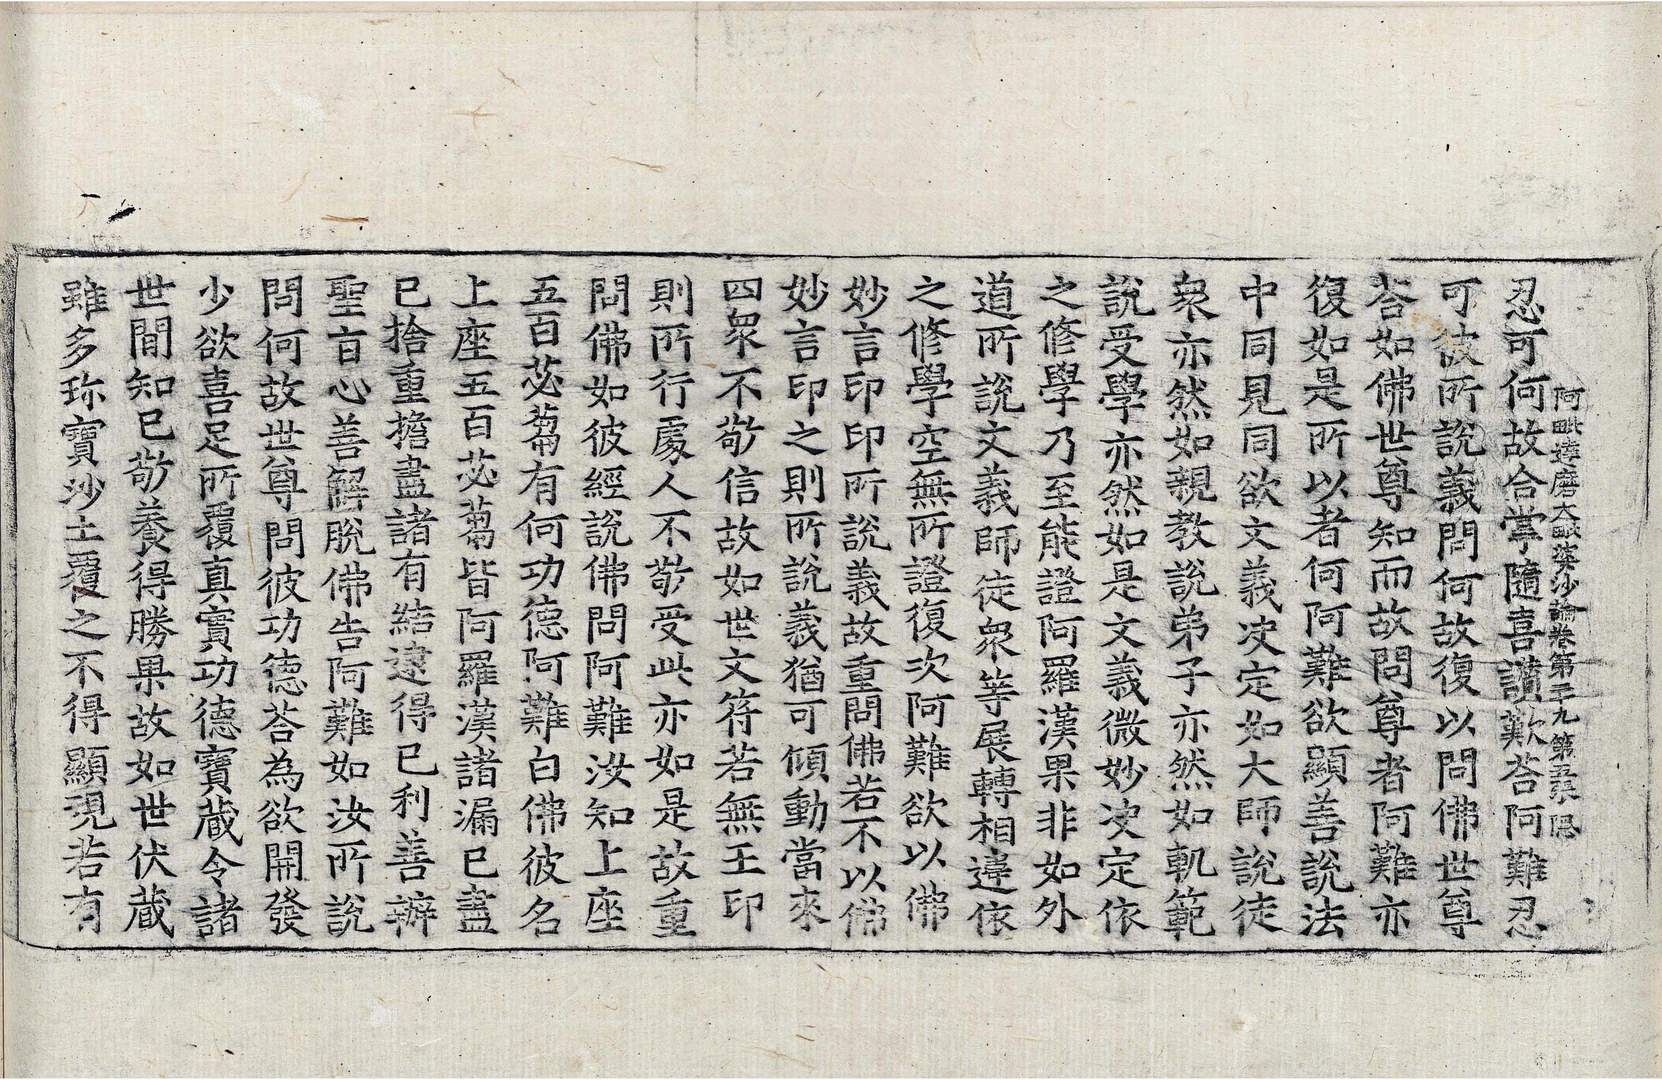 阿毗達磨大毗婆沙論卷第三九第五張隱
忍可何故合掌隨喜讃歎荅阿難忍
可彼所說義問何故復以問佛世尊
荅如佛世尊知而故問尊者阿難亦
復如是所以者何阿難欲顯善說法
中同見同欲文義决定如大師說徒
衆亦然如親教說弟子亦然如軌範
說受學亦然如是文義微妙决定依
之修學乃至能證阿羅漢果非如外
道所說文義師徒衆等展轉相違依
之修學空無所證復次阿難欲以佛
妙言印印所說義故重問佛若不以佛
妙言印之則所說義猶可傾動當來
四衆不敬信故如世文符若無王印
則所行處人不敬受此亦如是故重
問佛如彼經說佛問阿難汝知上座
五百苾蒭有何功德阿難白佛彼名
上座五百苾蒭皆阿羅漢諸漏已盡
已捨重擔盡諸有結逮得己利善辦
聖旨心善解脫佛告阿難如汝所說
問何故世尊問彼功德荅為欲開發
少欲喜足所覆真實功德寶藏令諸
世間知已敬養得勝果故如世伏藏
雖多珎寶沙土覆之不得顯現若有